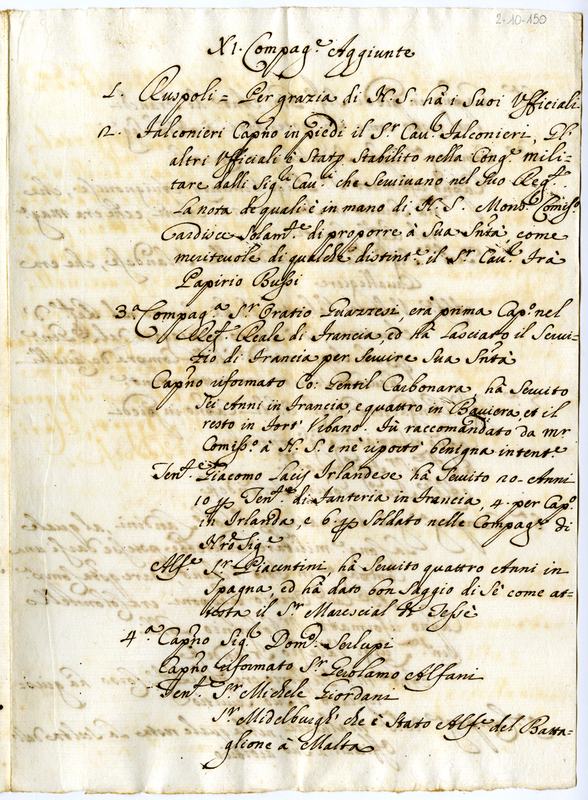 2-10-150
XI. Compag.e Aggiunte
1. Ruspoli = Per grazia di N. S. hà i Suoi Ufficiali
2. Falconieri Cap.no in piedi il S.r Cav.r Falconieri, Gl'
altri Ufficiali è Stato Stabilito nella Cong.e mili-
tare dalli Sig.i Cav.i che Servivano nel Suo Reg.to
La nota de quali è in mano di N. S. Mons.r Comiss.o
Ardisce Solam.te di proporre à Sua S.ntà come
meritevole di qualche distint.e il S.r Cav.r Frà
Papirio Bussi
3.a Compag.a S.r Oratio Guazzesi, erà prima Cap.o nel
Reg.to Reale di Francia, ed hà Lasciato il Servi-
zio di Francia per Servire Sua S.ntà
Cap.no riformato Co: Gentil Carbonara hà Servito
Sei Anni in Francia, e quattro in Baviera, et il
resto in Fort' Urbano. Fù raccomandato da mr
Comiss.o à N. S. e nè riportò benigna intent.e
Ten.te Giacomo Lacis Irlandese hà Servito 20. Anni
10 p Ten.te di Fanteria in Francia, 4. per Cap.o
in Irlanda, e 6 p Soldato nelle Compag.e di
N.ro Sig.re
Alf.e S.r Piacentini, hà Servito quattro Anni in
Spagna, ed hà dato bon Saggio di Sè come at-
testa il S.r Marescial di Tessè
4.a Cap.no Sig.r Dom.o Serlupi
Cap.no riformato S.r Girolamo Alfani
Ten.te S.r Michele Giordani
S.r Midelburgh che è Stato Alf.e del Batta-
glione à Malta